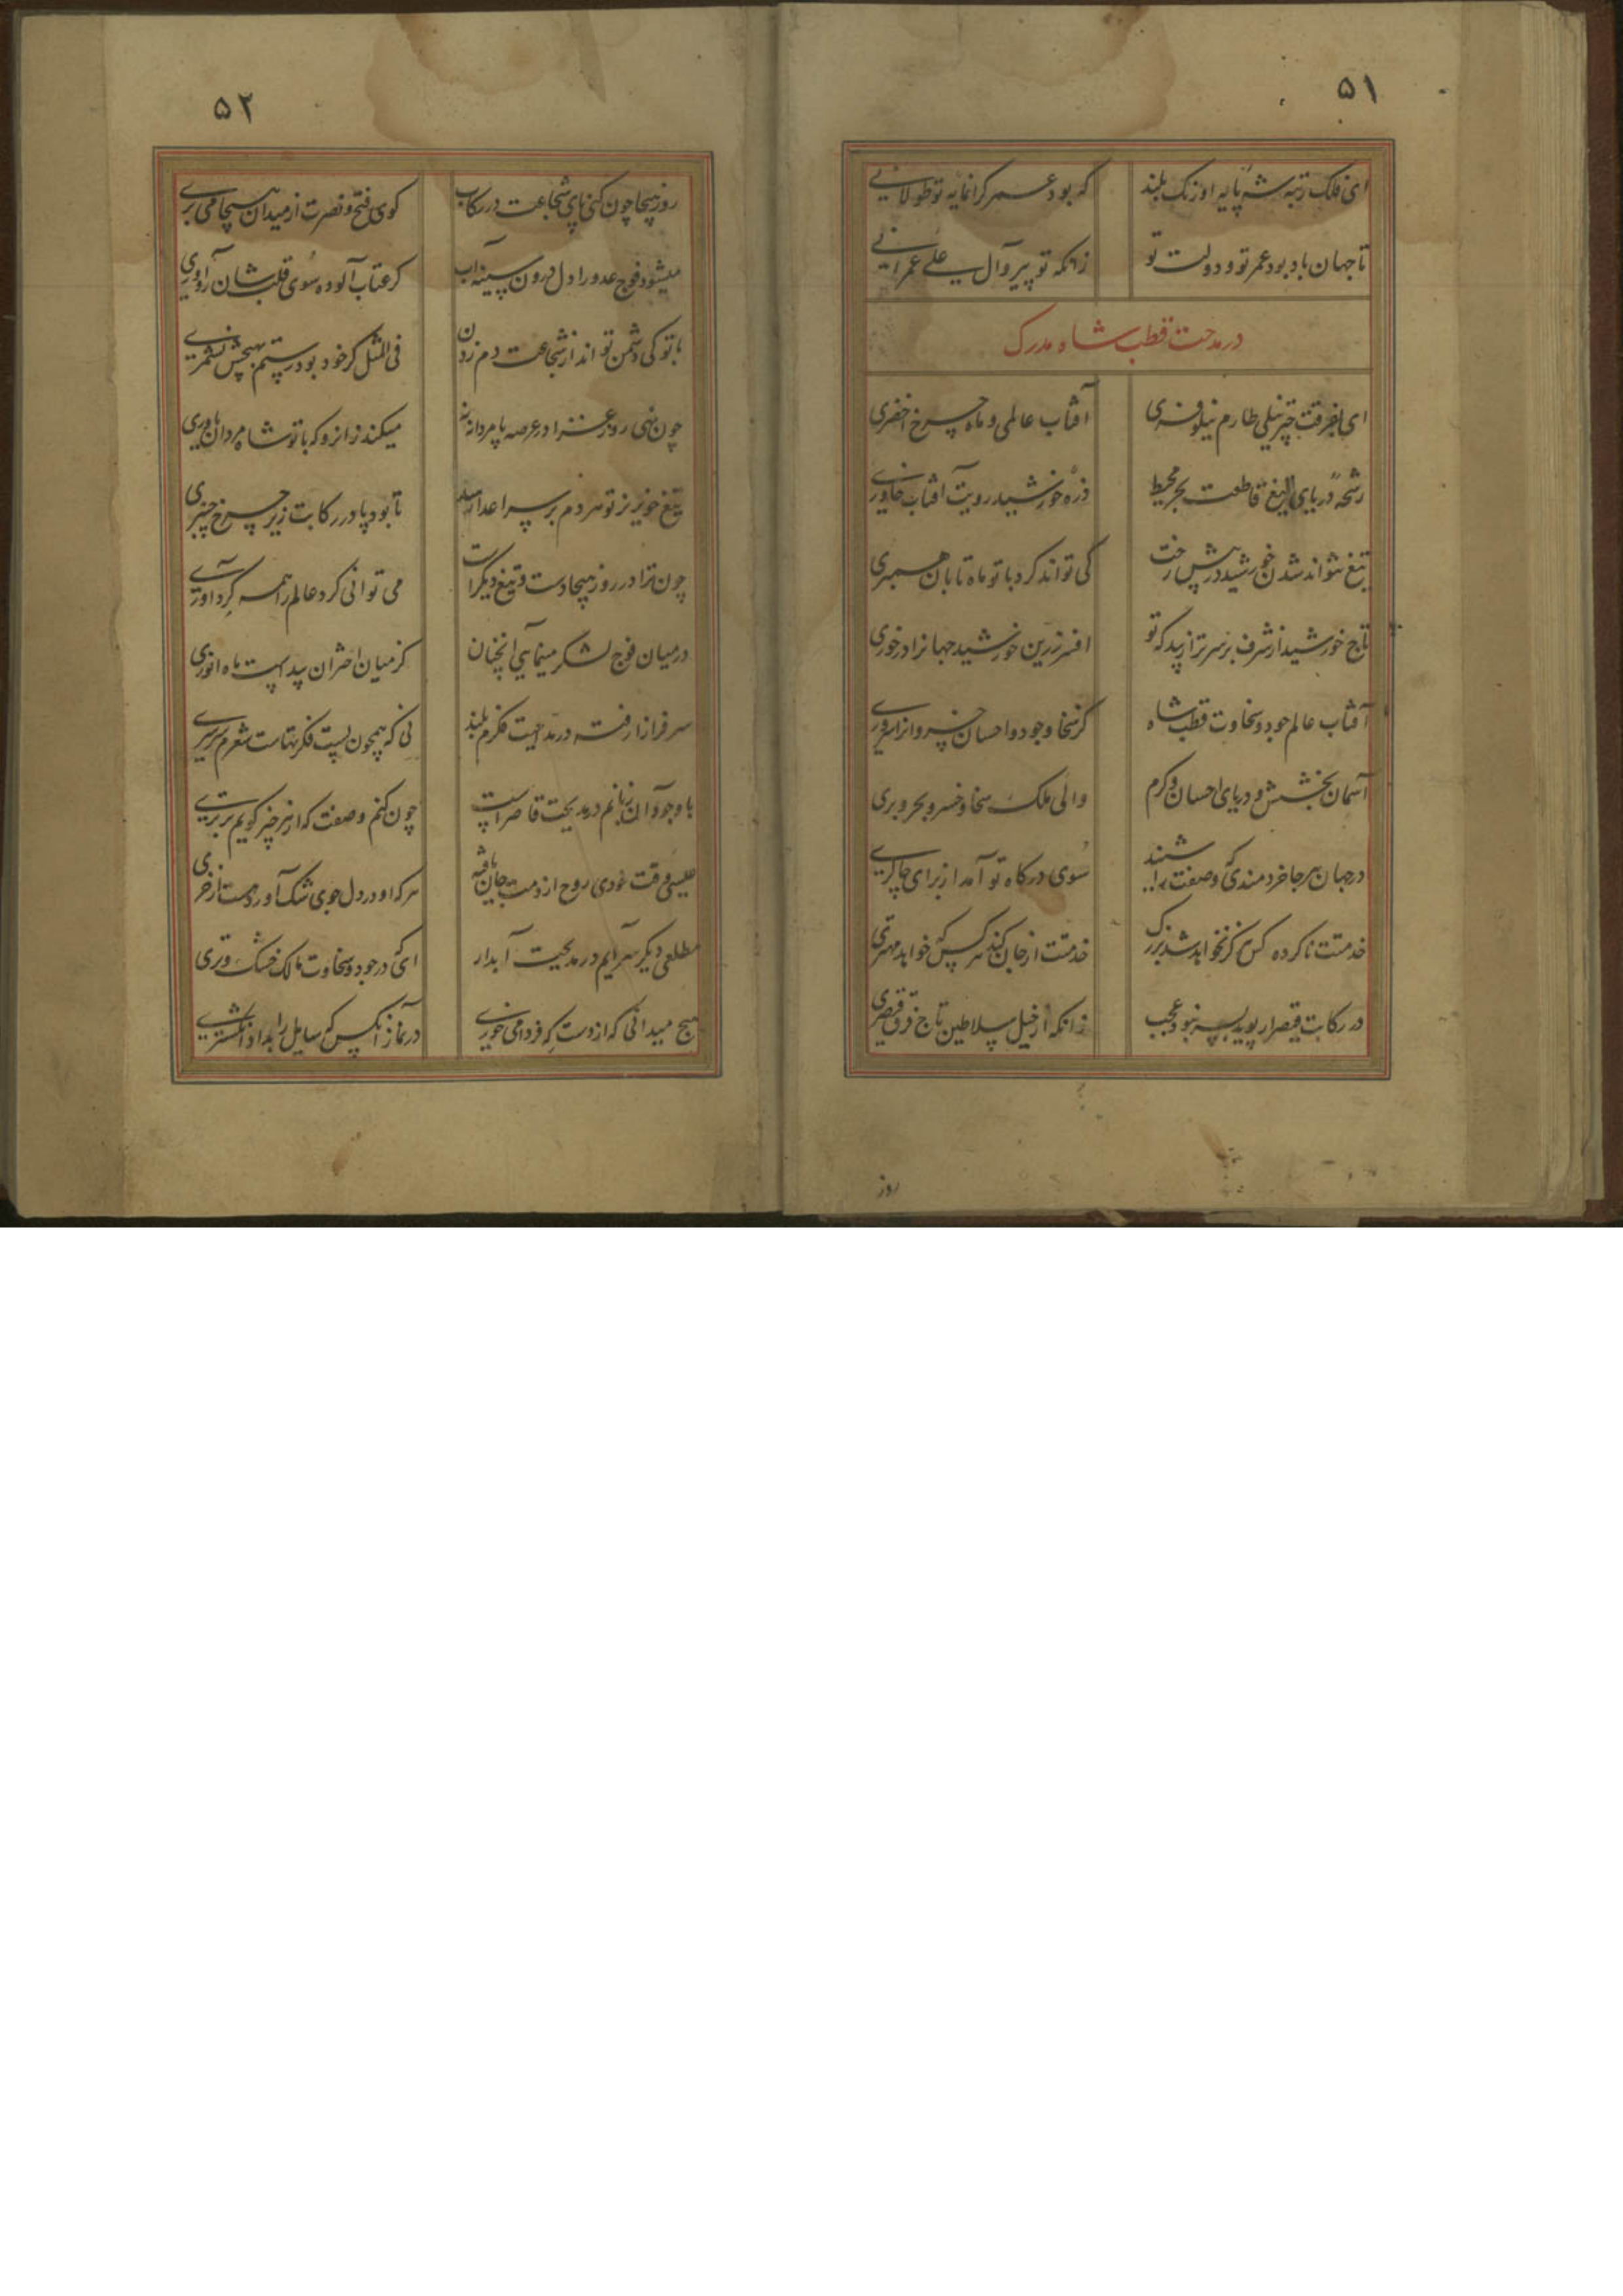 ۵۱
ای فلک رتبه شه پایه اورنک بلند
که بود عمر کرانمایه تو طولانی
تا جهان باد بود عمر تو و دولت تو
زانکه تو پیرو آل علی عمرانی
در مدحت قطب شاه مدرک
ای فرقت چتر نیلی طارم نیلوفری
آفتاب عالمی و ماه چرخ اخضری
رشحهٔ دریای تیغ قاطعت بحر محیط
ذرهٔ خورشید رویت آفتاب خاوری
تیغ نتواند شدن خورشید در پیش رخت
کی تواند کرد با تو ماه تابان همسری
تاج خورشید از شرف بر سر ترا زیبد که تو
افسر زرین خورشید جهانرا درخوری
آفتاب عالم جود و سخاوت قطب شاه
کز سخا و جود و احسان خسروانرا سروری
آسمان بخشش و دریای احسان و کرم
والی ملک سخا و خسرو بحر و بری
در جهان هر جا خردمندی وصفت شنید
سوی درکاه تو آمد از برای چاکری
خدمتت ناکرده کس هرکز نخواهد شد بزرک
خدمتت از جان کند هر کس که خواهد مهتری
در رکابت قیصر ار پوید بسر نبود عجب
زانکه از خیل سلاطین تاج فرق قیصری
روز
۵۲
روز هیجا چون کنی پای شجاعت در رکاب
کوی فتح و نصرت از میدان هیجا می بری
میشود فوج عدو را دل درون سینه آب
کر عتاب آلوده سوی قلب شان رو آوری
با تو کی دشمن تواند از شجاعت دم زدن
فی المثل کر خود بود رستم بهیچش نشمری
چون نهی روز غزا در عرصه پا مردانه
میکند زانرو که با تو شاه مردان یاوری
تیغ خونریز تو هر دم بر سر اعدا رسد
تا بود پا در رکابت زیر چرخ چنبری
چون ترا در روز هیجا دست و تیغ دیکر است
می توانی کرد عالم را همه کرد آوری
در میان فوج لشکر مینمایی آنچنان
کز میان اختران پیداست ماه انوری
سرفراز از فت در مدیحت فکرم بلند
نی که همچون پست فکرتهاست شعرم سرسری
با وجود آن زبانم در مدیحت قاصر است
چون کنم وصفت که از هر چیز کویم برتری
عیسی وقت خودی روح از دمت جان یافته
هر که او در دل جوی شک آورد هست از خری
مطلعی دیکر سرایم در مدیحت آبدار
ای که در جود و سخاوت مالک خشک و تری
هیچ میدانی که از دست که فردا می خوری
در نماز آنکس که سایل را بداد انکشتری